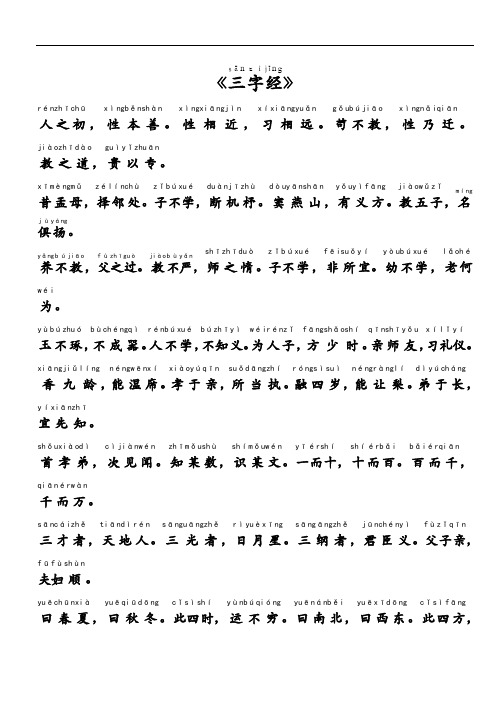 sānzìjīng
《三字经》
rénzhīchū xìngběnshàn xìngxiāngjìn xíxiāngyuǎn gǒubújiāo xìngnǎiqiān
人之初，性本善。性相近，习相远。苟不教，性乃迁。
jiàozhīdào guìyǐzhuān
教之道，贵以专。
xīmèngmǔ zélínchù zǐbúxué duànjīzhù dòuyānshān yǒuyìfāng jiàowǔzǐ míng
昔孟母，择邻处。子不学，断机杼。窦燕山，有义方。教五子，名
jùyáng
俱扬。
yǎngbújiāo fùzhīguò jiàobùyán shīzhīduò zǐbúxué fēisuǒyí yòubúxué lǎohé
养不教，父之过。教不严，师之惰。子不学，非所宜。幼不学，老何
wéi
为。
yùbùzhuó bùchéngqì rénbúxué bùzhīyì wéirénzǐ fāngshàoshí qīnshīyǒu xílǐyí
玉不琢，不成器。人不学，不知义。为人子，方少时。亲师友，习礼仪。
xiāngjiǔlíng néngwēnxí xiàoyúqīn suǒdāngzhí róngsìsuì néngrànglí dìyúcháng
香九龄，能温席。孝于亲，所当执。融四岁，能让梨。弟于长，
yíxiānzhī
宜先知。
shǒuxiàodì cìjiànwén zhīmǒushù shímǒuwén yīérshí shíérbǎi bǎiérqiān
首孝弟，次见闻。知某数，识某文。一而十，十而百。百而千，
qiānérwàn
千而万。
sāncáizhě tiāndìrén sānguāngzhě rìyuèxīng sāngāngzhě jūnchényì fùzǐqīn
三才者，天地人。三光者，日月星。三纲者，君臣义。父子亲，
fūfùshùn
夫妇顺。
yuēchūnxià yuēqiūdōng cǐsìshí yùnbúqióng yuēnánběi yuēxīdōng cǐsìfāng
曰春夏，曰秋冬。此四时，运不穷。曰南北，曰西东。此四方，